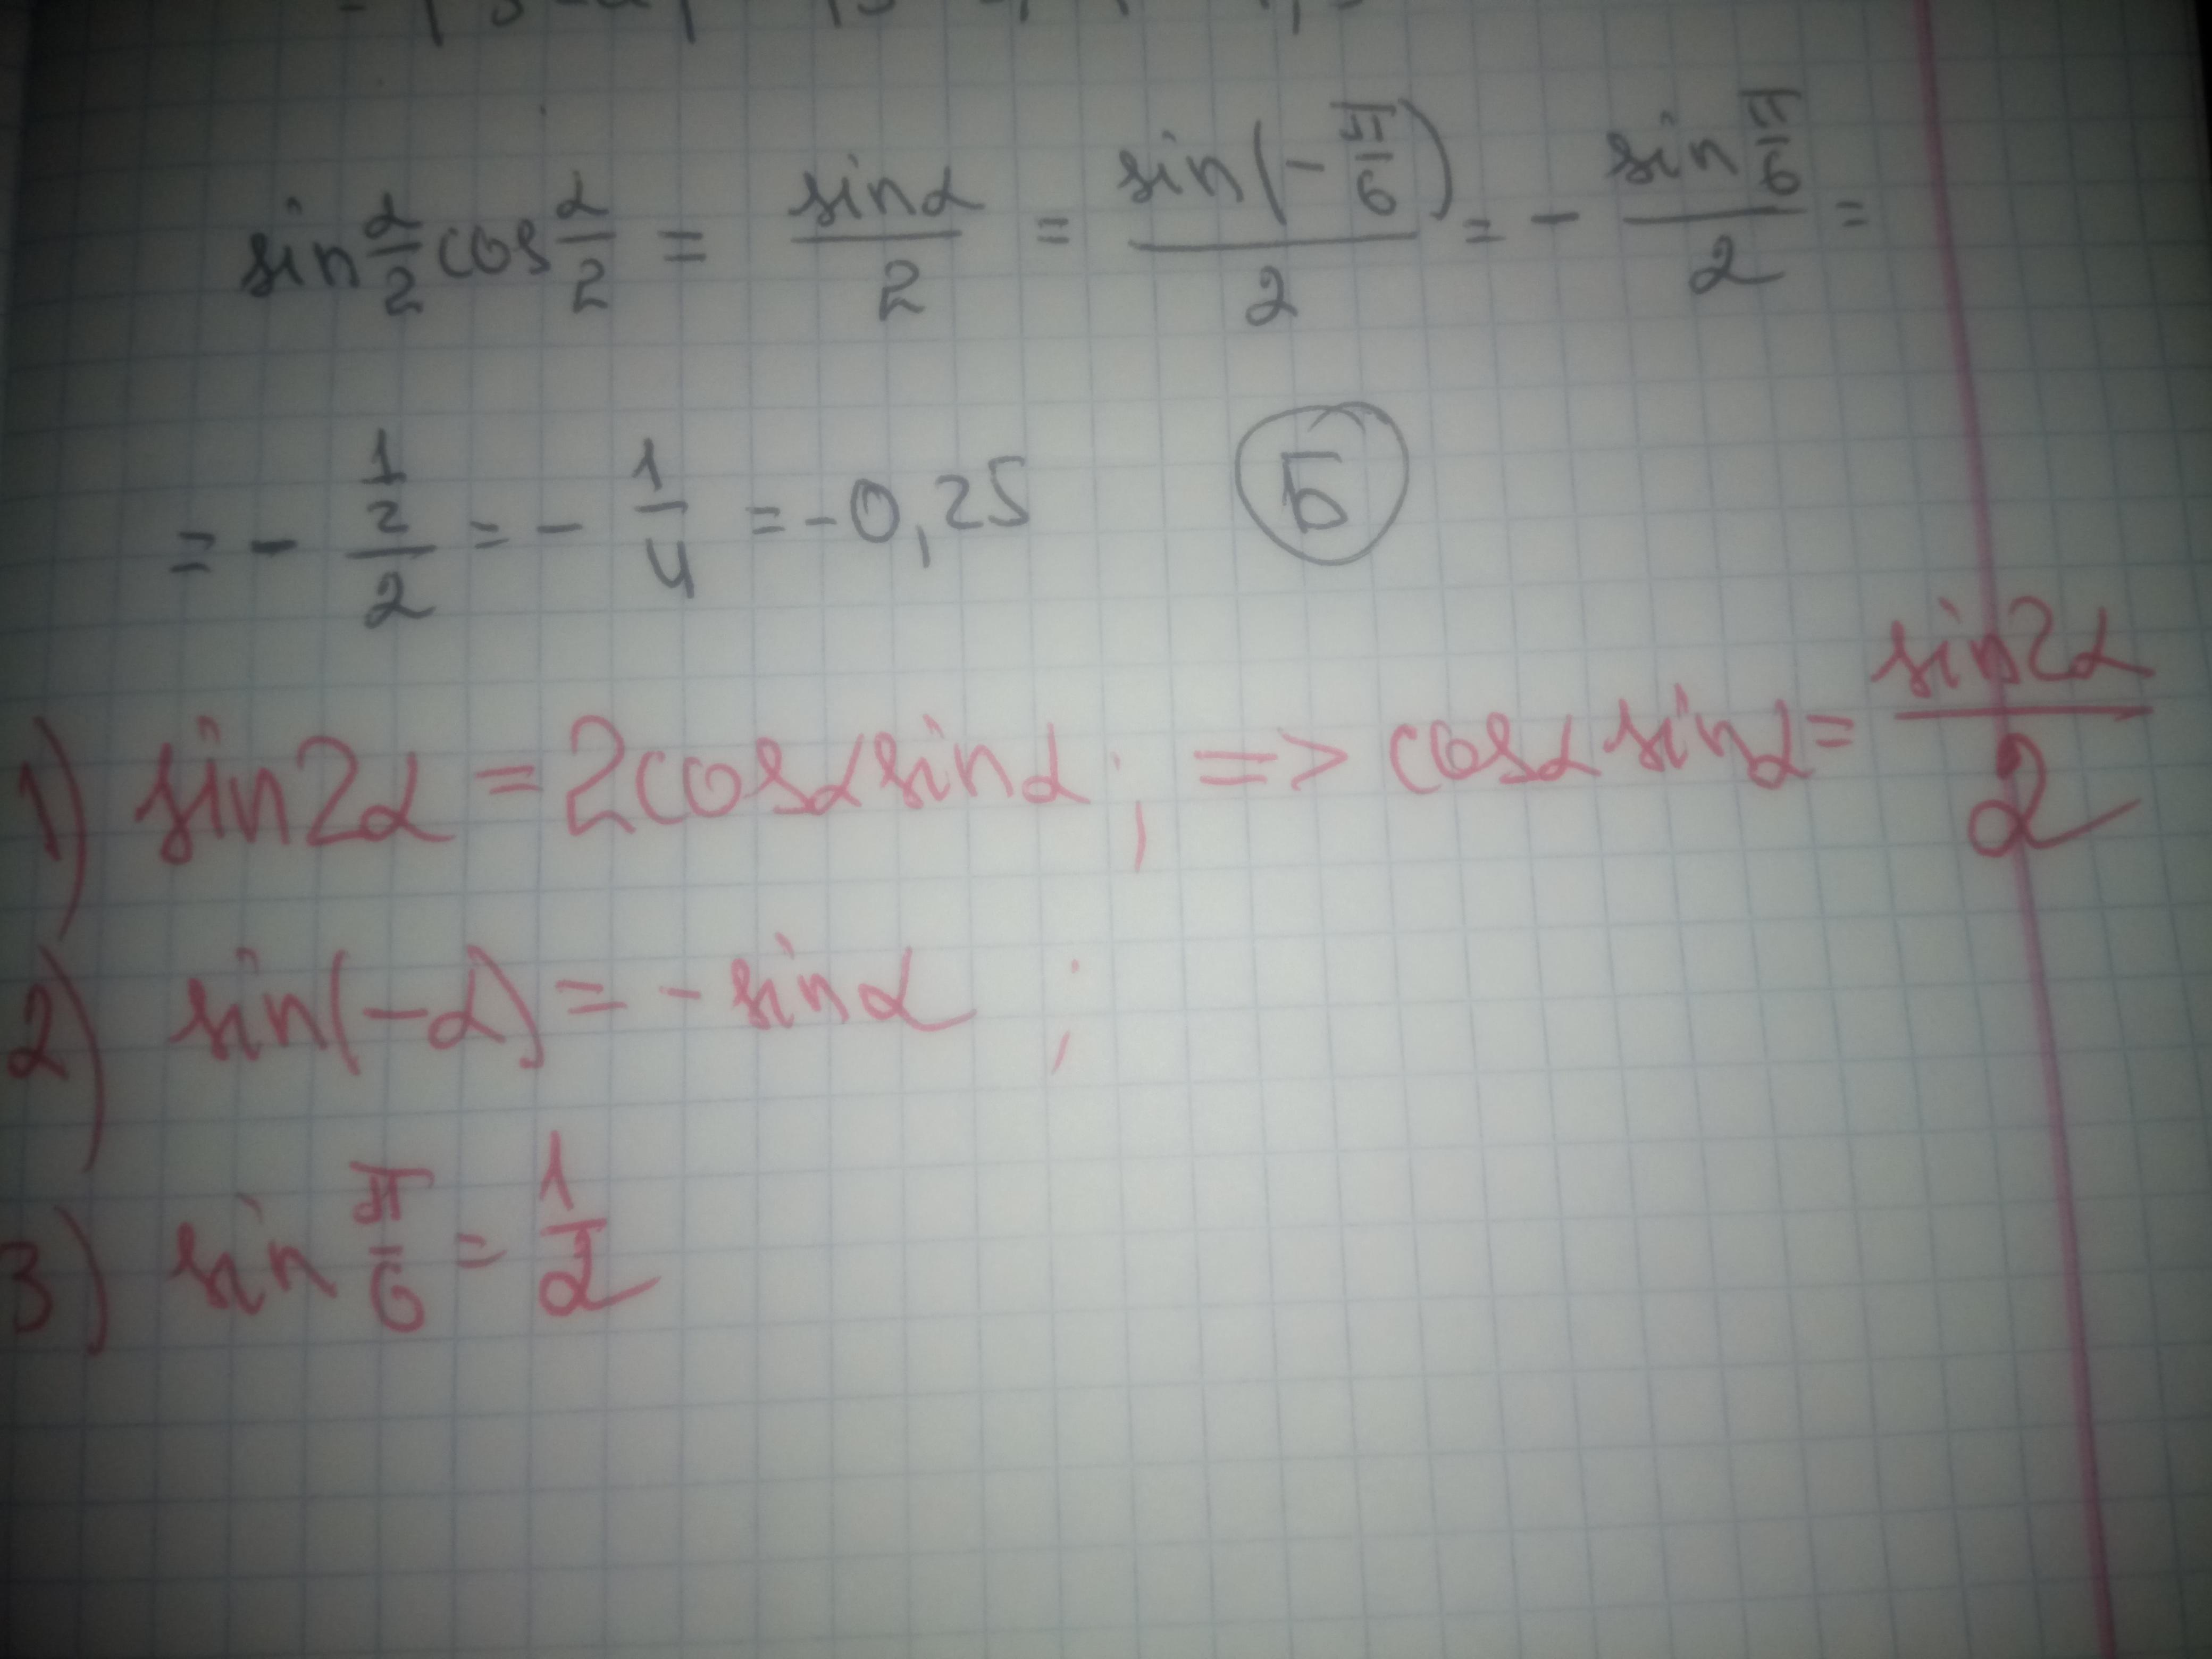 sin α/2 cos α/2 = sinα/2 = sin(-π/6)/2 = - sin π/6/2 =
= - 1/2/2 = - 1/4 = -0,25 Б
1) sin2α = 2cosαsinα; => cosα sinα = sin2α/2
2) sin(-α) = - sinα ;
3) sin π/6 = 1/2